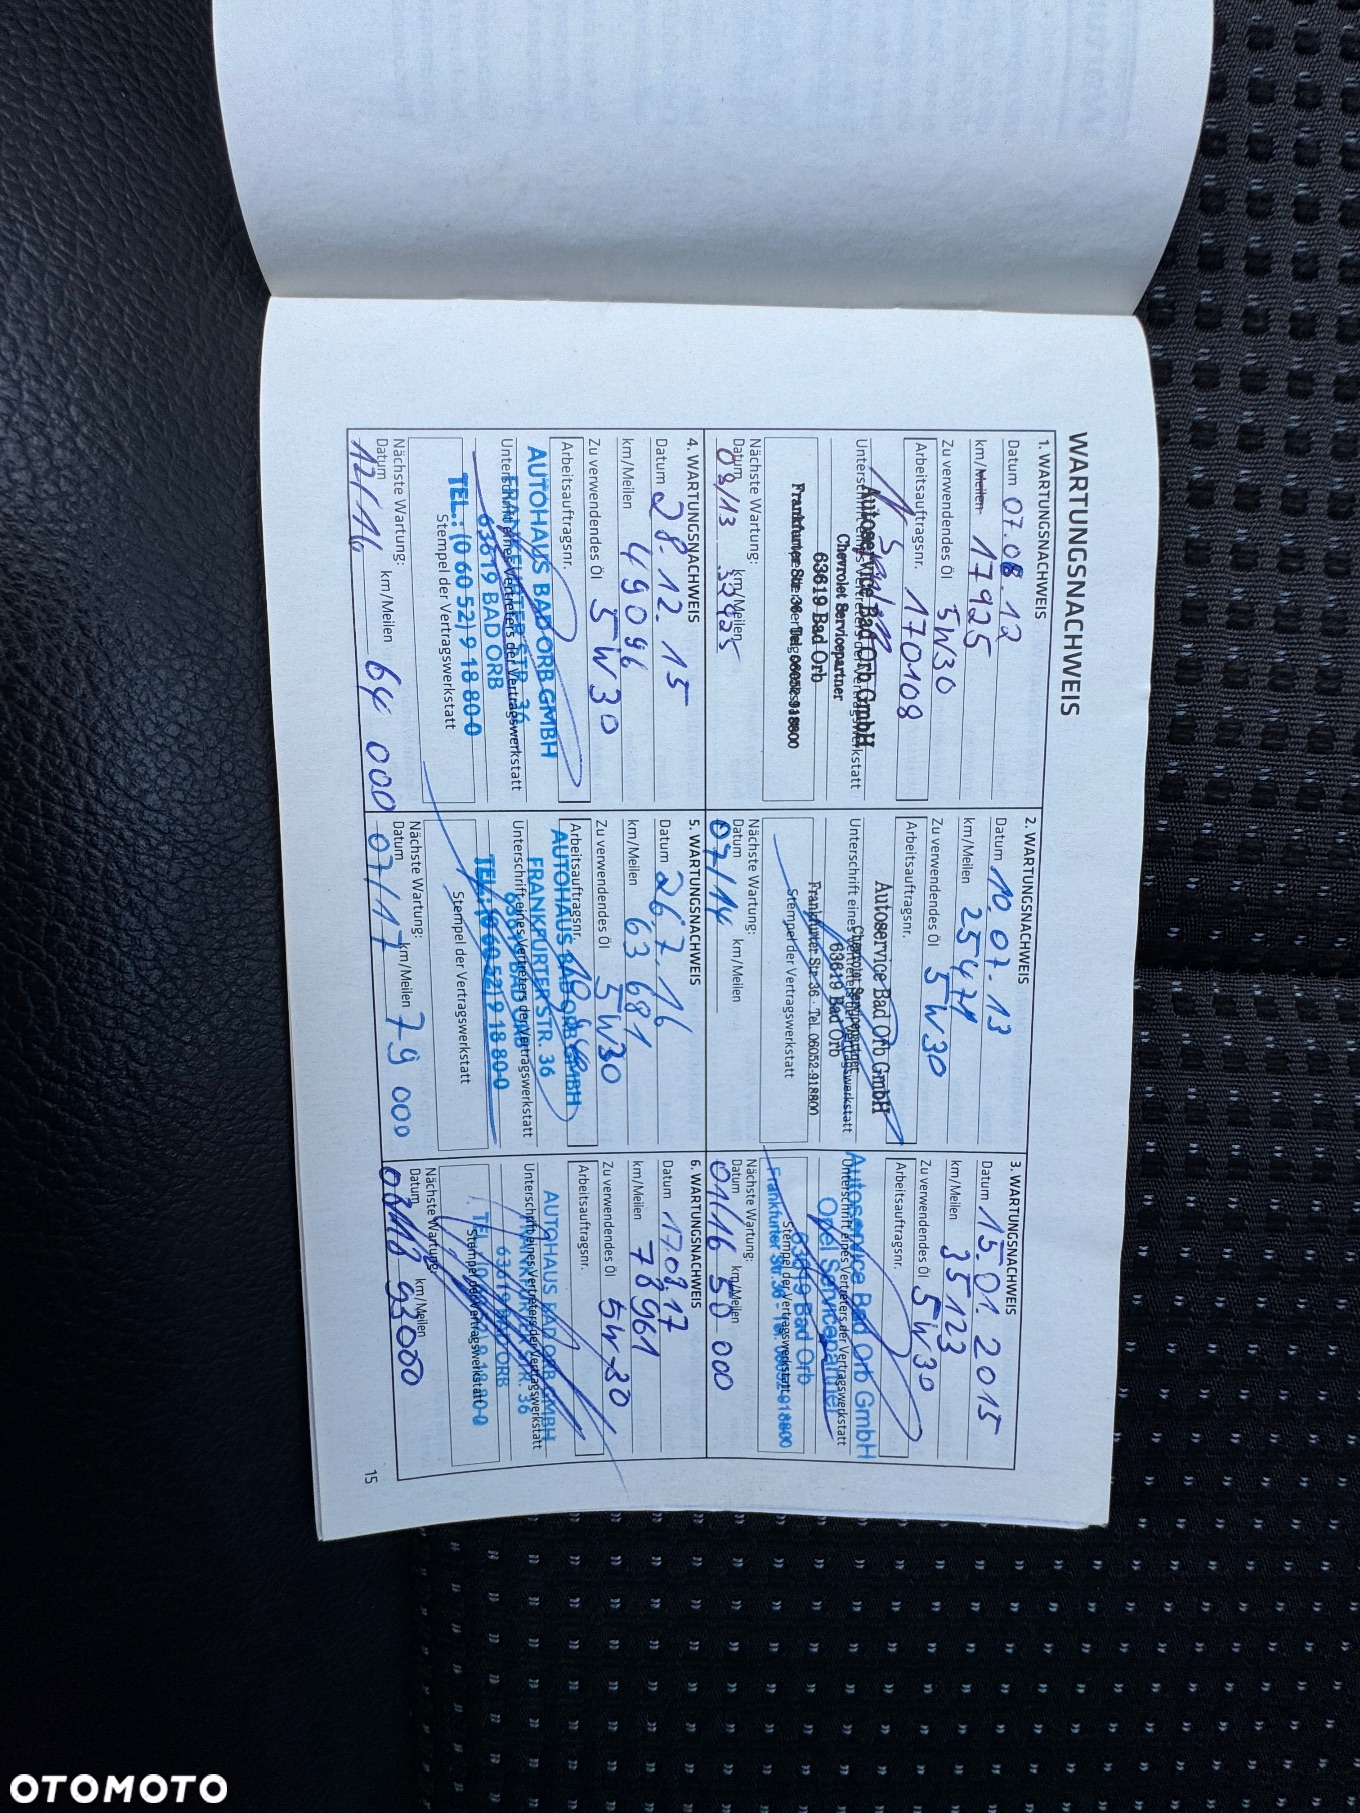 WARTUNGSNACHWEIS
1. WARTUNGSNACHWEIS
Datum 07.08.12
km/Meilen 17925
Zu verwendendes Öl 5W30
Arbeitsauftragsnr. 170108
Autoservice Bad Orb GmbH
Chevrolet Servicepartner
63619 Bad Orb
Frankfurter Str. 36 · Tel. 06052-918800
Nächste Wartung:
Datum 08/13 km/Meilen
2. WARTUNGSNACHWEIS
Datum 10.07.13
km/Meilen 25471
Zu verwendendes Öl 5W30
Arbeitsauftragsnr.
Autoservice Bad Orb GmbH
Unterschrift eines Vertreters der Vertragswerkstatt
Chevrolet Servicepartner
63619 Bad Orb
Frankfurter Str. 36 · Tel. 06052-918800
Stempel der Vertragswerkstatt
Nächste Wartung:
Datum 07/14 km/Meilen
3. WARTUNGSNACHWEIS
Datum 15.01.2015
km/Meilen 35123
Zu verwendendes Öl 5W30
Arbeitsauftragsnr.
Autoservice Bad Orb GmbH
Unterschrift eines Vertreters der Vertragswerkstatt
Opel Servicepartner
63619 Bad Orb
Stempel der Vertragswerkstatt
Frankfurter Str. 36 - Tel. 06052-918800
Nächste Wartung:
Datum 01/16 km/Meilen 50 000
4. WARTUNGSNACHWEIS
Datum 28.12.15
km/Meilen 49096
Zu verwendendes Öl 5W30
Arbeitsauftragsnr.
AUTOHAUS BAD ORB GMBH
Unterschrift eines Vertreters der Vertragswerkstatt
FRANKFURTER STR. 36
63619 BAD ORB
TEL.: (0 60 52) 9 18 80-0
Stempel der Vertragswerkstatt
Nächste Wartung:
Datum 12/16 km/Meilen 64 000
5. WARTUNGSNACHWEIS
Datum 26.7.16
km/Meilen 63 681
Zu verwendendes Öl 5W30
Arbeitsauftragsnr.
AUTOHAUS BAD ORB GMBH
FRANKFURTER STR. 36
Unterschrift eines Vertreters der Vertragswerkstatt
63619 BAD ORB
TEL.: (0 60 52) 9 18 80-0
Stempel der Vertragswerkstatt
Nächste Wartung:
Datum 07/17 km/Meilen 79 000
6. WARTUNGSNACHWEIS
Datum 17.08.17
km/Meilen 78961
Zu verwendendes Öl 5W-30
Arbeitsauftragsnr.
AUTOHAUS BAD ORB GMBH
Unterschrift eines Vertreters der Vertragswerkstatt
FRANKFURTER STR. 36
63619 BAD ORB
Stempel der Vertragswerkstatt
TEL.: (0 60 52) 9 18 80-0
Nächste Wartung:
Datum 08/18 km/Meilen 95000
15
OTOMOTO